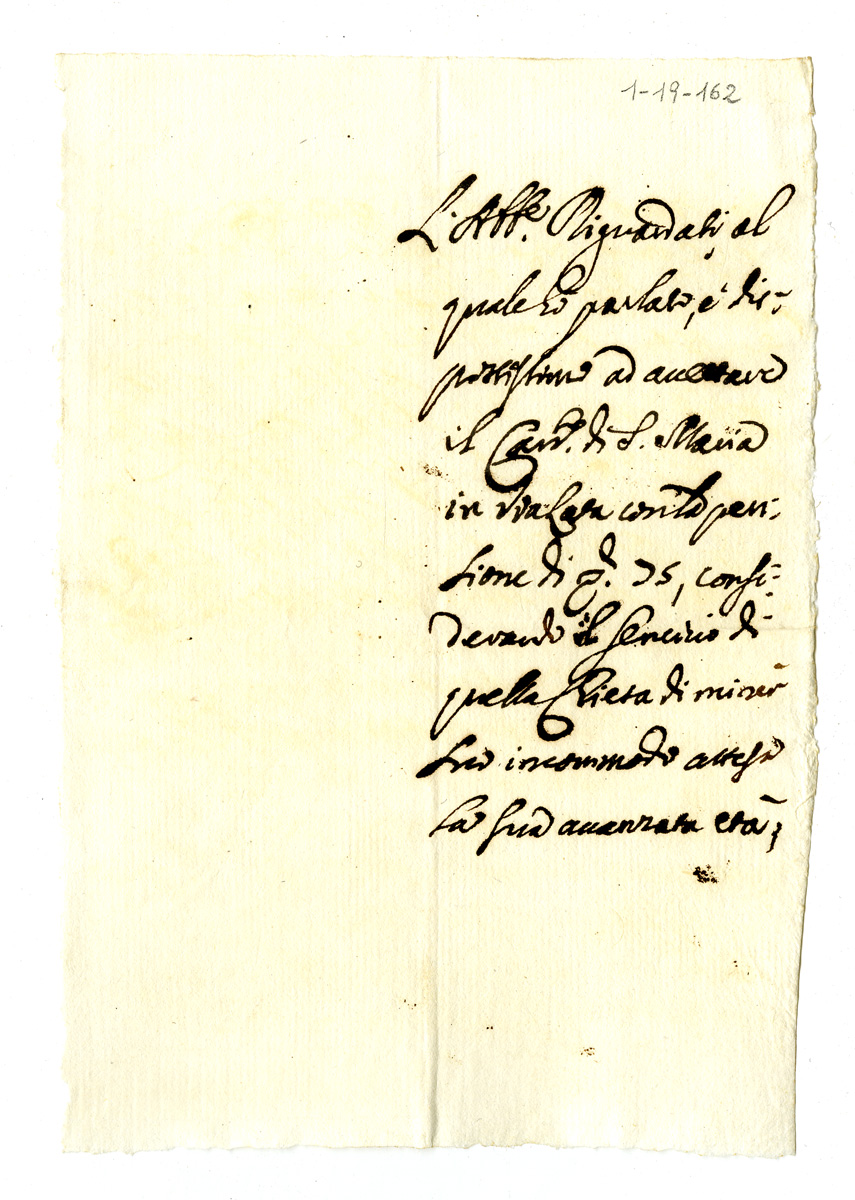 1-19-162
L'Abb.e Riguardati, al
quale hò parlato, è dis-
postissimo ad accettare
il Can.to di S. Maria
in via Lata con la pen-
sione di 75, consi-
derando il servizio di
quella Chiesa di minor
suo incommodo attesa
la sua avanzata età;